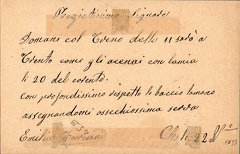 Pregiatissimo Signore
Domani col treno delle 11 sarò a
Trento come gli accennai con la mia
li 20 del corrente.
con profondissimo rispetto le baccio la mano
assegnandomi ossechiosissima serva
Emilia
li 22